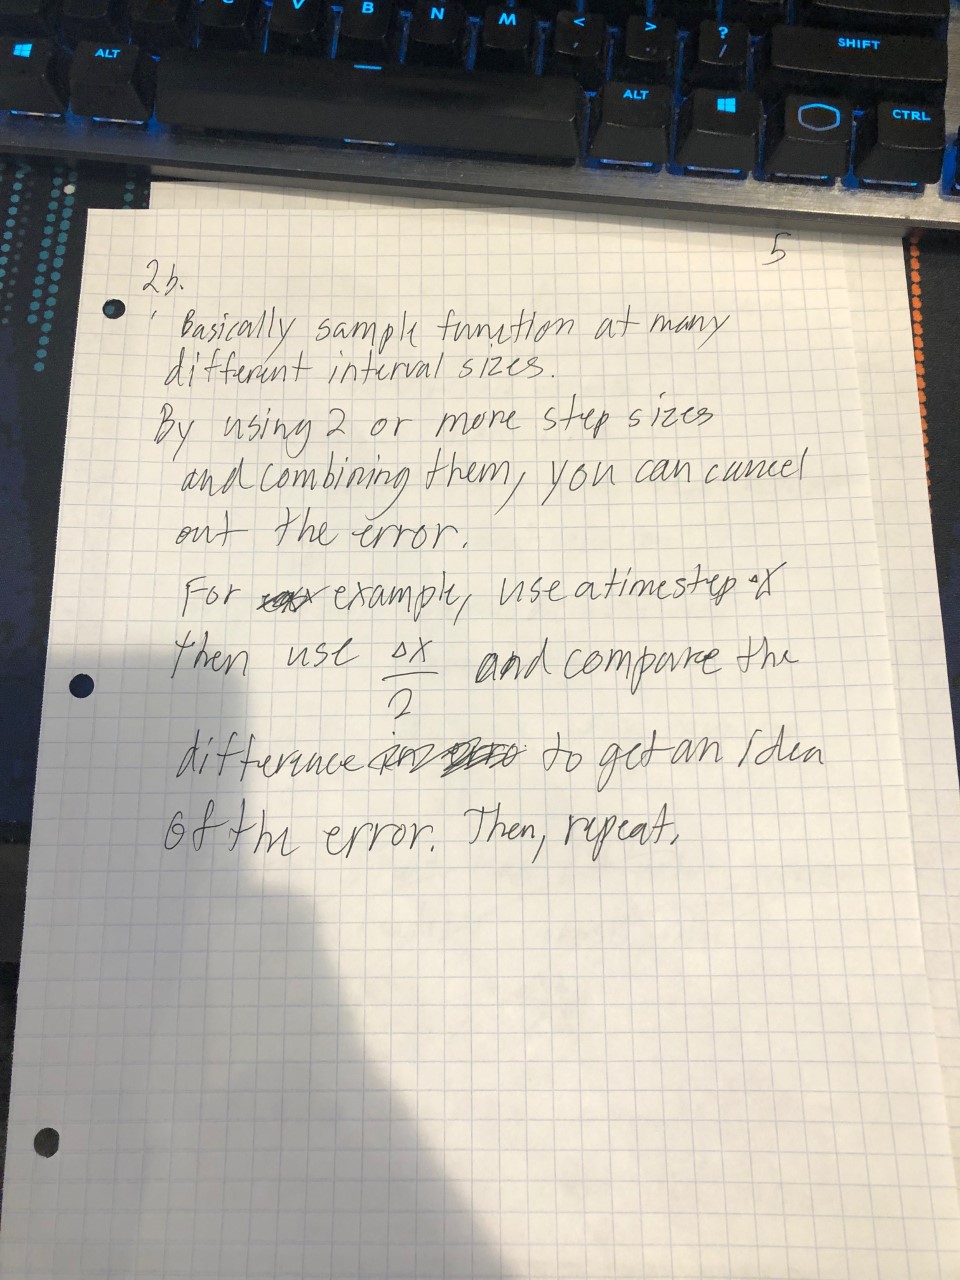 C V B N M < , > . ? / SHIFT
ALT ALT CTRL
5
2b.
Basically sample function at many
different interval sizes.
By using 2 or more step sizes
and combining them, you can cancel
out the error.
For example, use a timestep ΔX
then use ΔX/2 and compare the
difference to get an idea
of the error. Then, repeat.